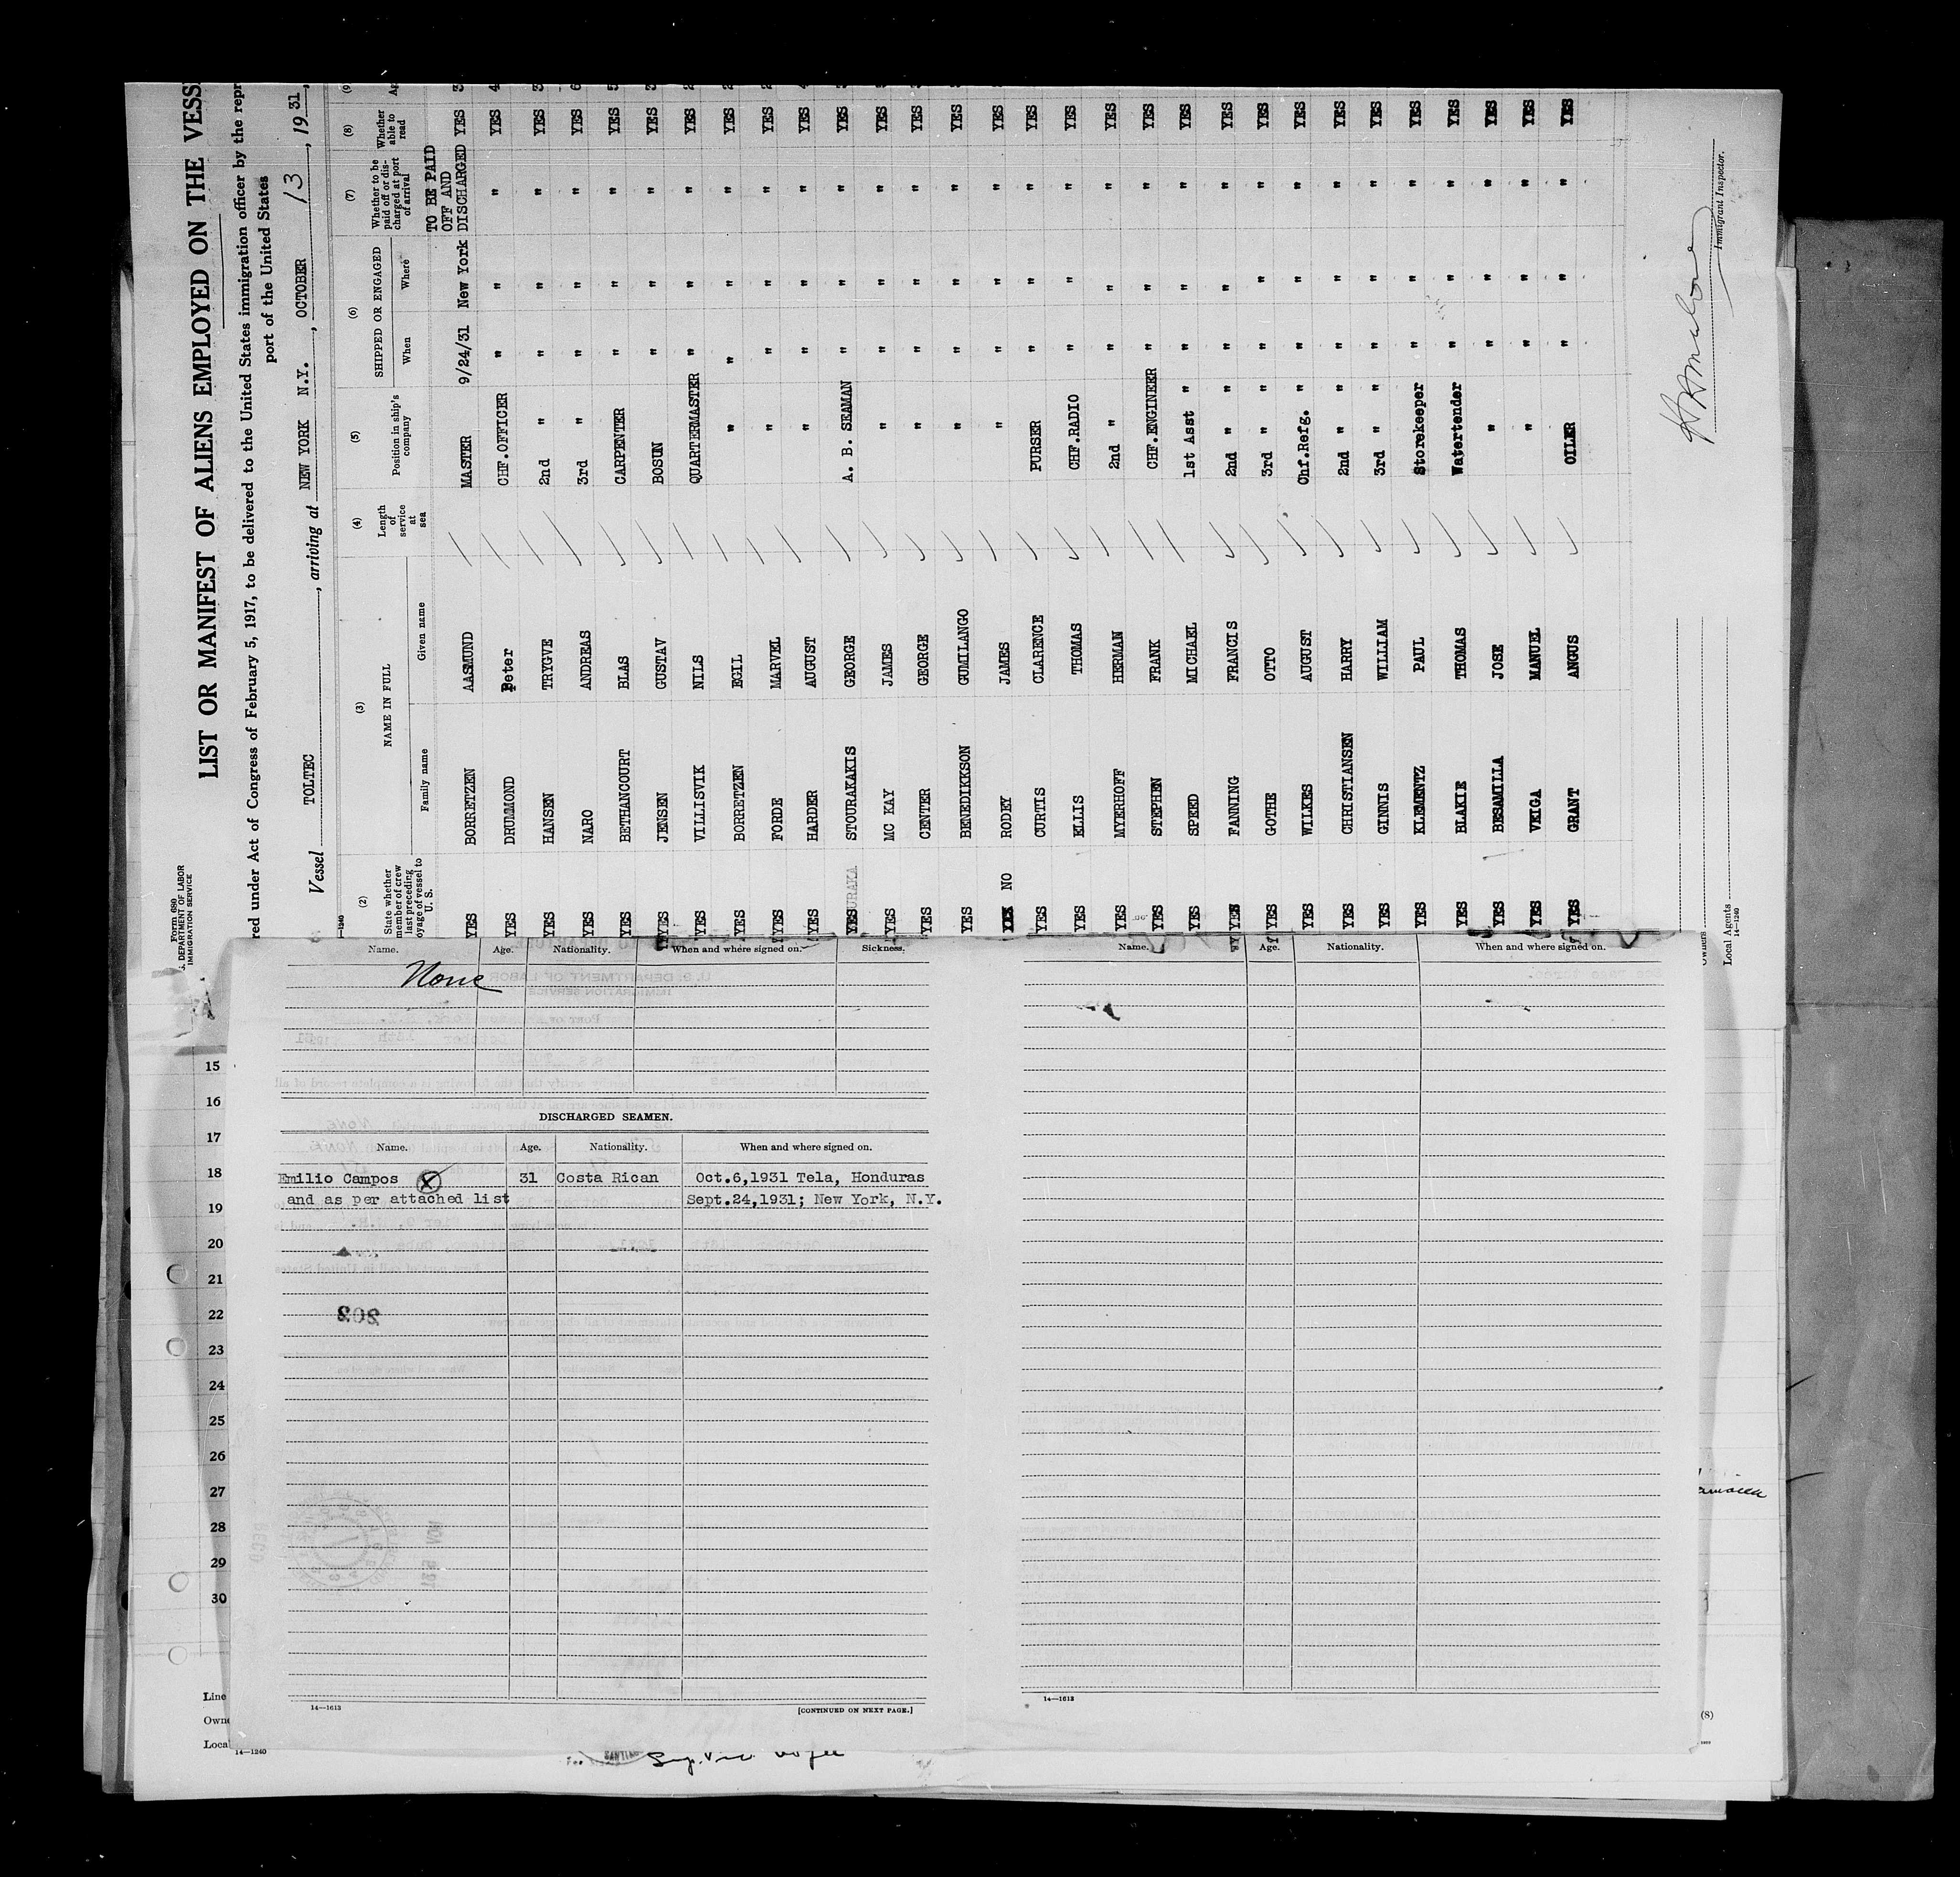 Form 680
U. S. DEPARTMENT OF LABOR
IMMIGRATION SERVICE
LIST OR MANIFEST OF ALIENS EMPLOYED ON THE VESS
red under Act of Congress of February 5, 1917, to be delivered to the United States immigration officer by the repr
port of the United States
Vessel TOLTEC, arriving at NEW YORK N.Y., OCTOBER 13, 1931,
14-1240
(2) (3) (4) (5) (6) (7) (8) (9
State whether member of crew last preceding voyage of vessel to U. S. NAME IN FULL Length of service at sea Position in ship's company SHIPPED OR ENGAGED Whether to be paid off or discharged at port of arrival Whether able to read Ag
Family name Given name When Where
TO BE PAID
OFF AND
YES BORRETZEN AASMUND MASTER 9/24/31 New York DISCHARGED YES 3
YES DRUMMOND Peter CHF.OFFICER " " " YES 4
YES HANSEN TRYGVE 2nd " " " " YES 3
YES NARO ANDREAS 3rd " " " " YES 6
YES BETHANCOURT BLAS CARPENTER " " " YES 5
YES JENSEN GUSTAV BOSUN " " " YES 3
YES VILLISVIK NILS QUARTERMASTER " " " YES 2
YES BORRETZEN EGIL " " " " YES 2
YES FORDE MARVEL " " " " YES 2
YES HARDER AUGUST " " " " YES 4
YES STOURAKAKIS GEORGE A. B. SEAMAN " " " YES
YES MC KAY JAMES " " " " YES
YES CENTER GEORGE " " " " YES
YES BENEDIKKSON GUMILANGO " " " " YES
YES NO RODEY JAMES " " " " YES
YES CURTIS CLARENCE PURSER " " " YES
YES ELLIS THOMAS CHF.RADIO " " " YES
YES MYERHOFF HERMAN 2nd " " " " YES
YES STEPHEN FRANK CHF.ENGINEER " " " YES
YES SPEED MICHAEL 1st Asst " " " " YES
YES FANNING FRANCIS 2nd " " " " " YES
YES GOTHE OTTO 3rd " " " " " YES
YES WILKES AUGUST Chf.Refg. " " " " YES
YES CHRISTIANSEN HARRY 2nd " " " " " YES
YES GINNIS WILLIAM 3rd " " " " " YES
YES KLEMENTZ PAUL Storekeeper " " " YES
YES BLAKIE THOMAS Watertender " " " YES
YES BESAMILLA JOSE " " " " YES
YES VEIGA MANUEL " " " " YES
YES GRANT ANGUS OILER " " " YES
Immigrant Inspector.
Owners
Local Agents
14-1240
Name. Age. Nationality. When and where signed on. Sickness.
None
DISCHARGED SEAMEN.
Name. Age. Nationality. When and where signed on.
Emilio Campos X 31 Costa Rican Oct.6,1931 Tela, Honduras
and as per attached list Sept.24,1931; New York, N.Y.
14—1613
[CONTINUED ON NEXT PAGE.]
Name. Age. Nationality. When and where signed on.
14—1613
15
16
17
18
19
20
21
22
23
24
25
26
27
28
29
30
Line
Own
Loca
14—1240
(8)